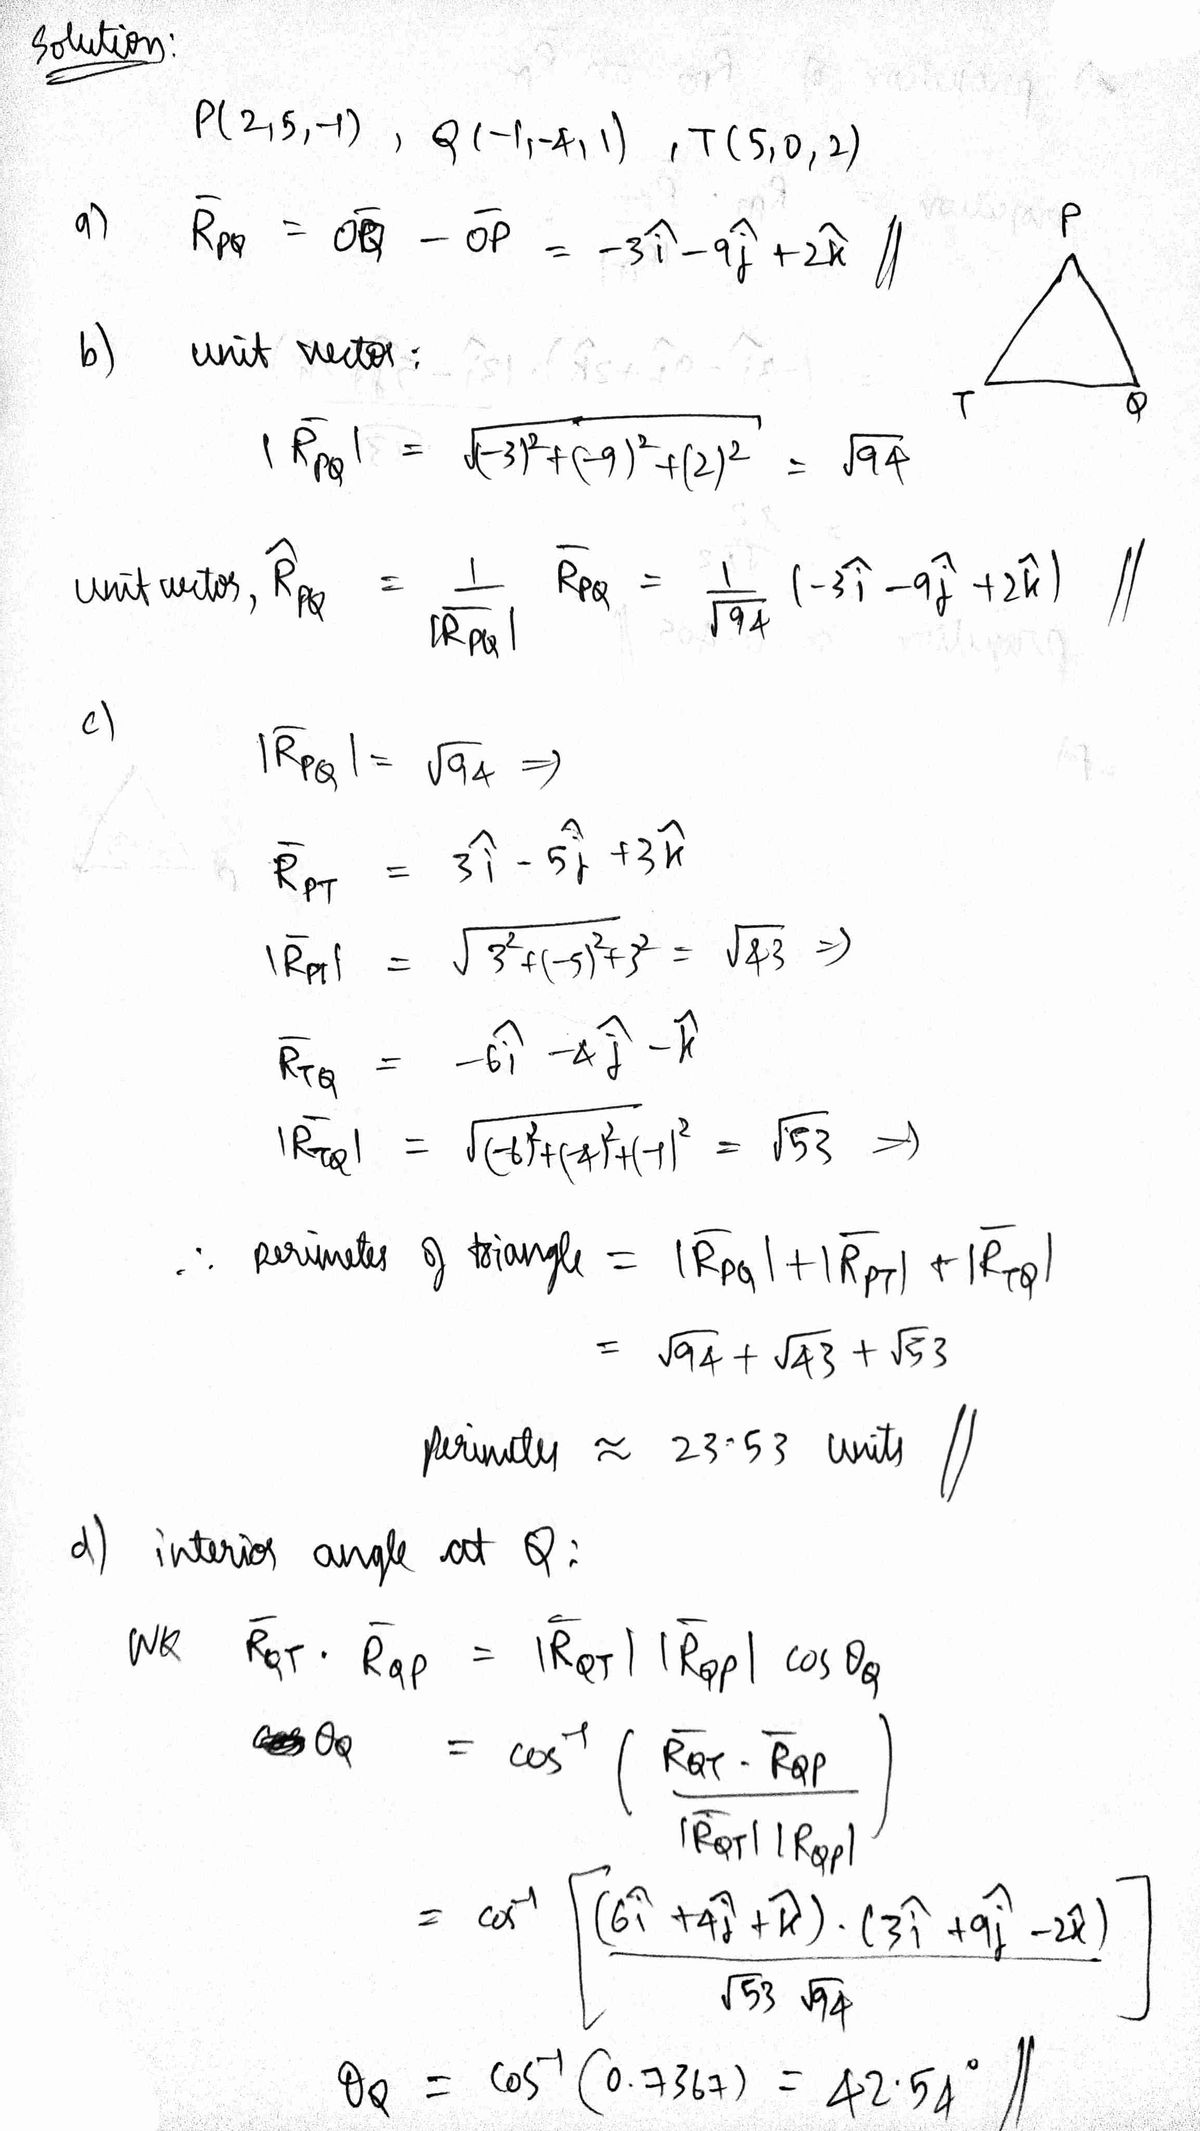 Solution:
P(2,5,-1) , Q(-1,-4,1) , T(5,0,2)
a) R̄PQ = OQ̄ - OP̄ = -3î - 9ĵ + 2k̂ //
P
T Q
b) unit vector:
|R̄PQ| = √(-3)² + (-9)² + (2)² = √94
unit vector, R̂PQ = 1/|R̄PQ| R̄PQ = 1/√94 (-3î - 9ĵ + 2k̂) //
c)
|R̄PQ| = √94 ⇒
R̄PT = 3î - 5ĵ + 3k̂
|R̄PT| = √3² + (-5)² + 3² = √43 ⇒
R̄TQ = -6î - 4ĵ - k̂
|R̄TQ| = √(-6)² + (-4)² + (-1)² = √53 ⇒
∴ perimeter of triangle = |R̄PQ| + |R̄PT| + |R̄TQ|
= √94 + √43 + √53
perimeter ≈ 23.53 units //
d) interior angle at Q:
WK R̄QT . R̄QP = |R̄QT| |R̄QP| cos θQ
θQ = cos⁻¹ ( R̄QT . R̄QP / |R̄QT| |RQP| )
= cos⁻¹ [ (6î + 4ĵ + k̂) . (3î + 9ĵ - 2k̂) / √53 √94 ]
θQ = cos⁻¹ (0.7367) = 42.54° //